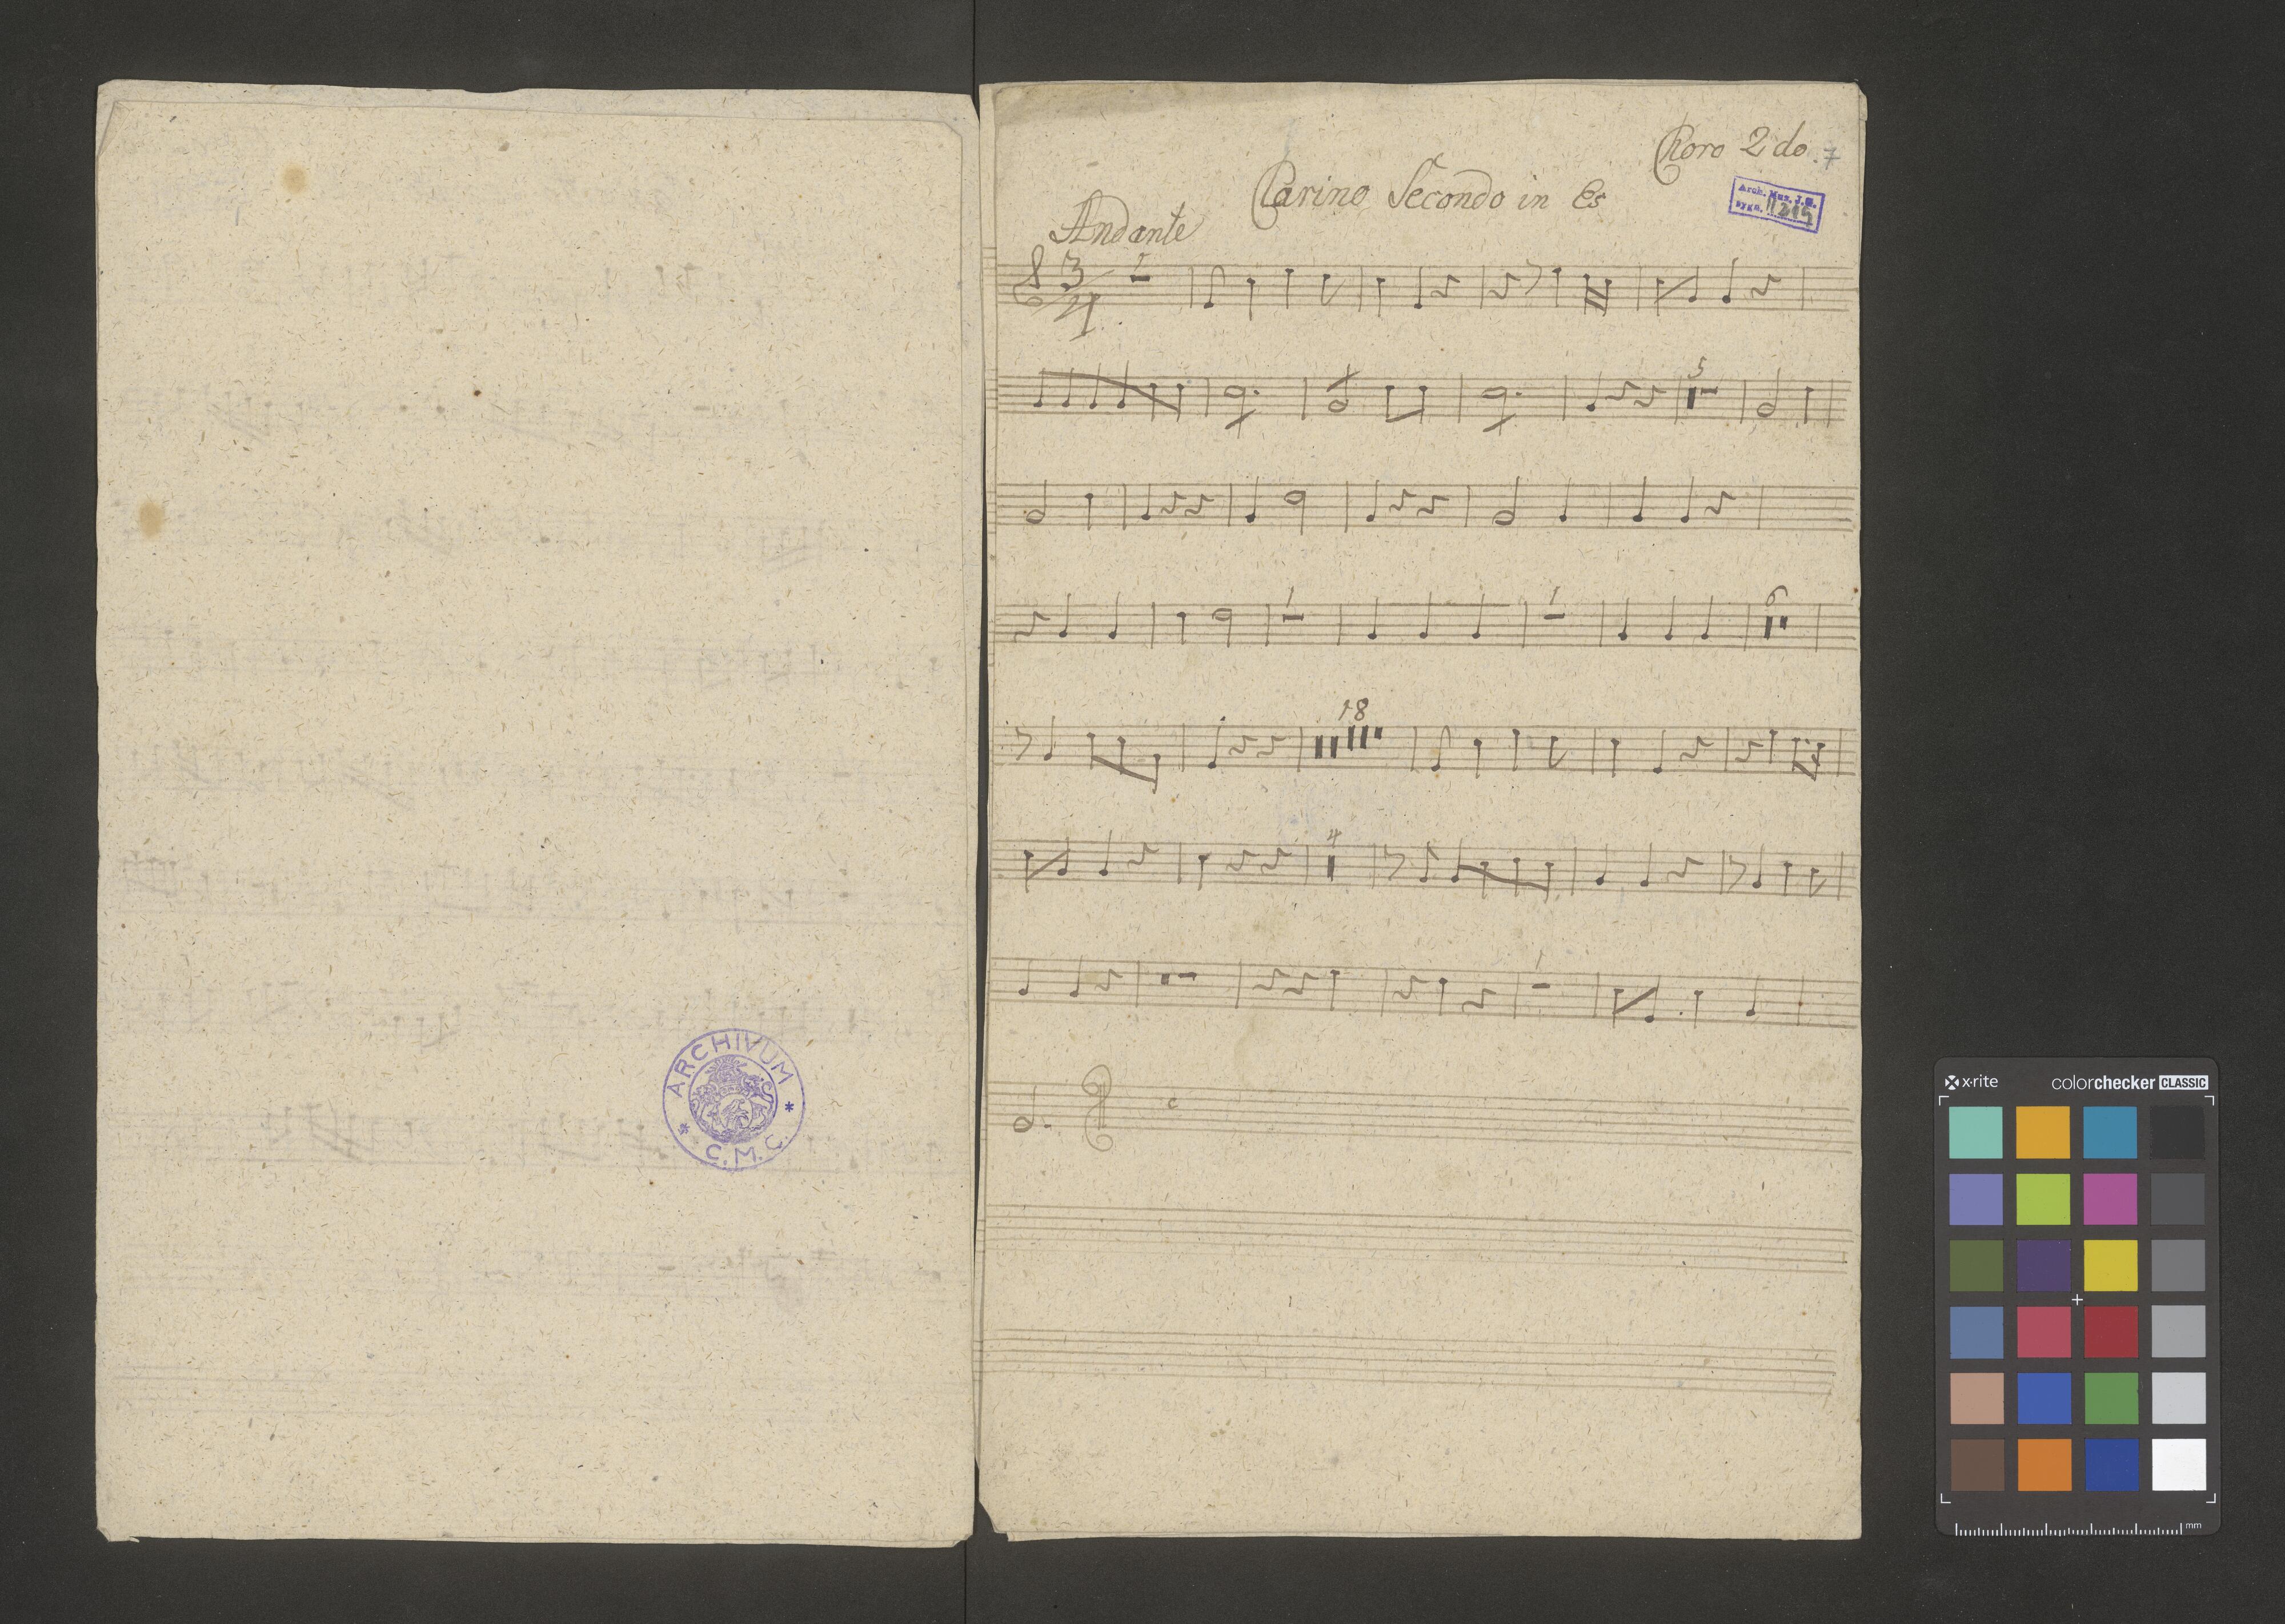 Choro 2do. 7
Clarino Secondo in Es
Arch. Mus. J. G.
sygn. II 219
Andante
3/4
1
5
1
1
6
18
4
1
ARCHIVUM
* C.M.C. *
x-rite
colorchecker CLASSIC
mm